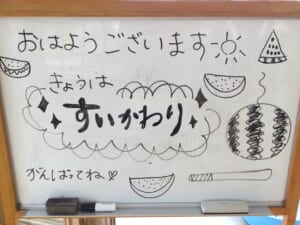 おはようございます
きょうは
すいかわり
がんばってね